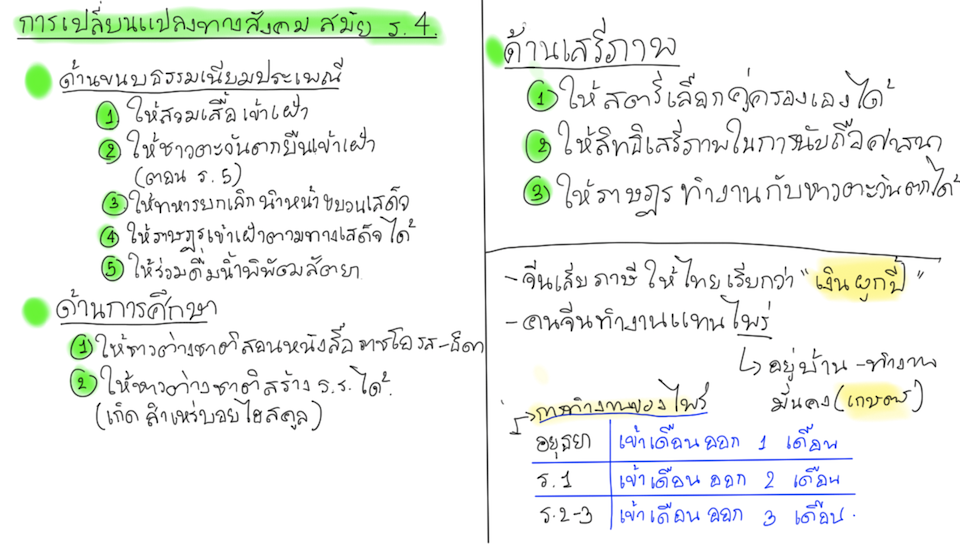 การเปลี่ยนแปลงทางสังคม สมัย ร.4.
ด้านขนบธรรมเนียมประเพณี
1 ให้สวมเสื้อเข้าเฝ้า
2 ให้ชาวตะวันตกยืนเข้าเฝ้า
(ตอน ร.5)
3 ให้ทหารยกเลิกนำหน้าขบวนเสด็จ
4 ให้ราษฎรเข้าเฝ้าตามทางเสด็จได้
5 ให้ร่วมดื่มน้ำพิพัฒสัตยา
ด้านการศึกษา
1 ให้ชาวต่างชาติสอนหนังสือราชโอรส-ธิดา
2 ให้ชาวต่างชาติสร้าง ร.ร. ได้
(เกิด สำเหร่บอยไฮสคูล)
ด้านเสรีภาพ
1 ให้สตรีเลือกคู่ครองเองได้
2 ให้สิทธิเสรีภาพในการนับถือศาสนา
3 ให้ราษฎร ทำงานกับชาวตะวันตกได้
- จีนเสียภาษี ให้ไทย เรียกว่า "เงินผูกปี้"
- คนจีนทำงานแทนไพร่
↳ อยู่บ้าน - ทำงาน
มั่นคง (เกษตร)
การทำงานของไพร่
อยุธยา เข้าเดือน ออก 1 เดือน
ร.1 เข้าเดือน ออก 2 เดือน
ร.2-3 เข้าเดือน ออก 3 เดือน.